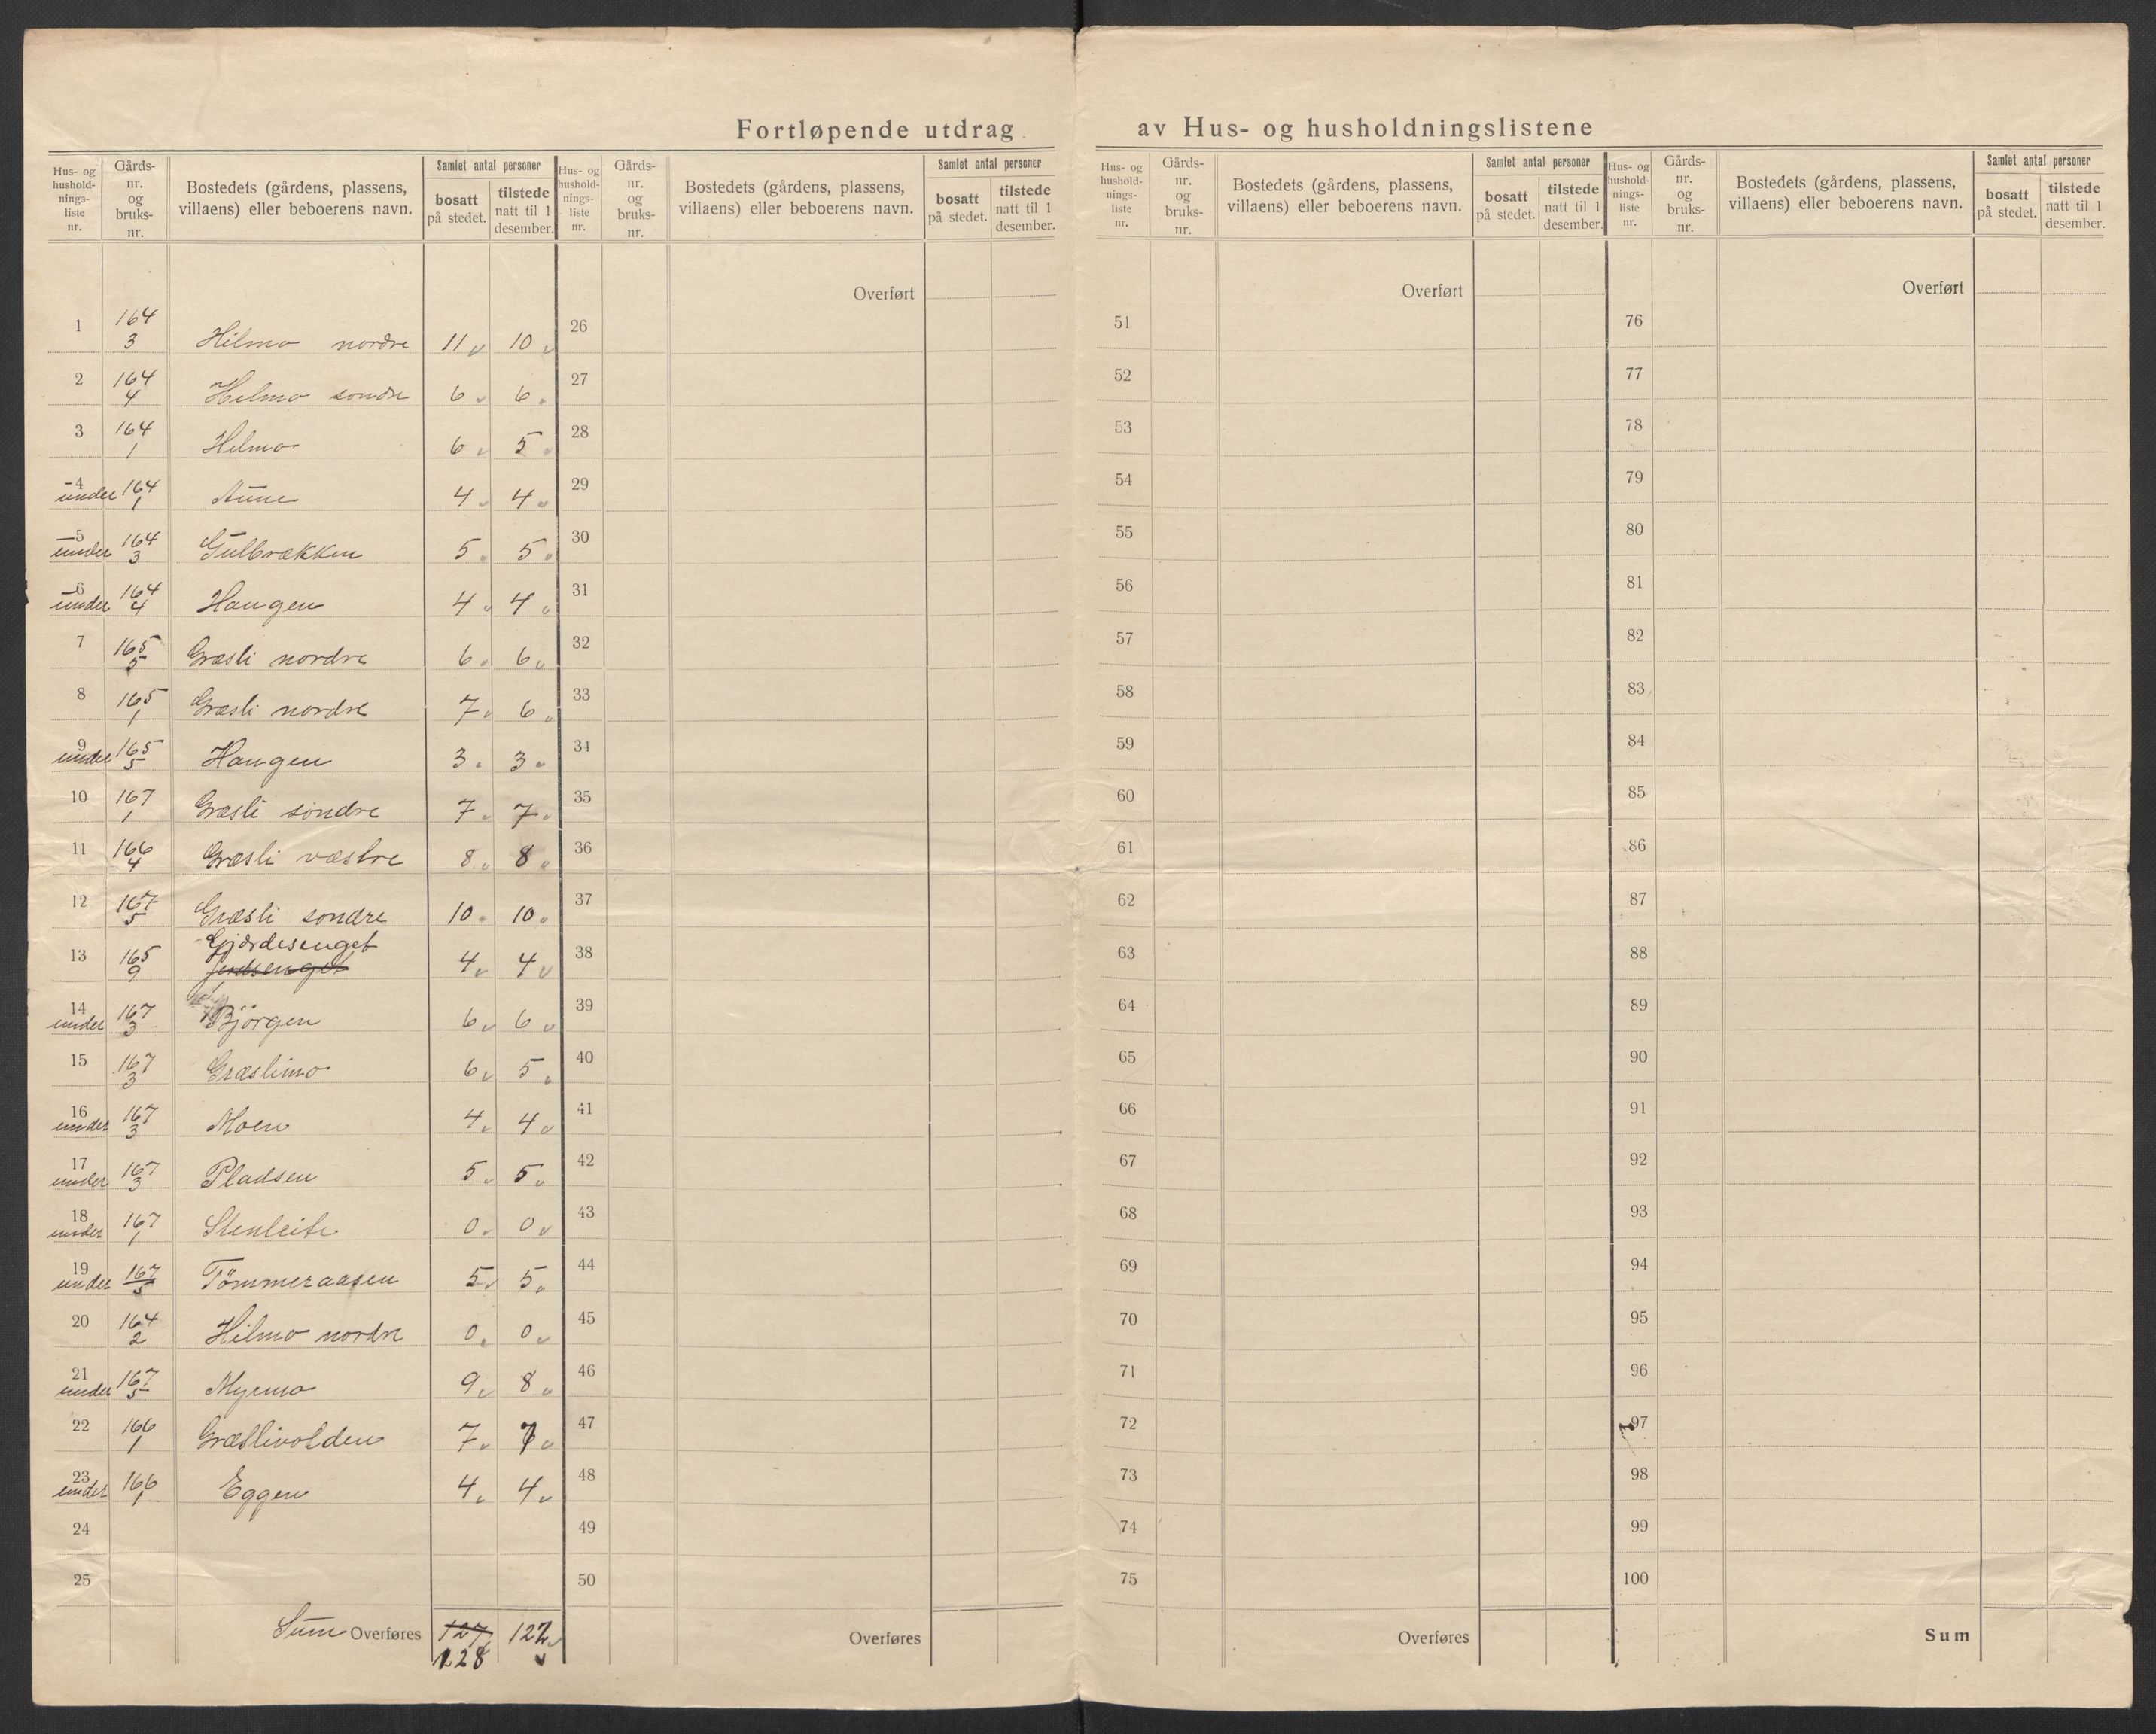 Fortløpende utdrag av Hus- og husholdningslistene
Hus- og hushold- nings- liste nr. Gårds- nr. og bruks- nr. Bostedets (gårdens, plassens, villaens) eller beboerens navn. Samlet antal personer bosatt på stedet. tilstede natt til 1 desember.
Hus- og hushold- nings- liste nr. Gårds- nr. og bruks- nr. Bostedets (gårdens, plassens, villaens) eller beboerens navn. Samlet antal personer bosatt på stedet. tilstede natt til 1 desember.
Hus- og hushold- nings- liste nr. Gårds- nr. og bruks- nr. Bostedets (gårdens, plassens, villaens) eller beboerens navn. Samlet antal personer bosatt på stedet. tilstede natt til 1 desember.
Hus- og hushold- nings- liste nr. Gårds- nr. og bruks- nr. Bostedets (gårdens, plassens, villaens) eller beboerens navn. Samlet antal personer bosatt på stedet. tilstede natt til 1 desember.
1 164/3 Hilmo nordre 11 10
2 164/4 Hilmo sondre 6 6
3 164/1 Hilmo 6 5
4 under 164/1 Aune 4 4
5 under 164/3 Gulbrækken 5 5
6 under 164/4 Haugen 4 4
7 165/5 Græsli nordre 6 6
8 165/1 Græsli nordre 7 6
9 under 165/5 Haugen 3 3
10 167/1 Græsli söndre 7 7
11 166/4 Græsli væstre 8 8
12 167/5 Græsli sondre 10 10
Gjærdesenget
13 165/9 4 4
14 under 167/3 Bjørgen 6 6
15 167/3 Græslimo 6 5
16 under 167/3 Moen 4 4
17 under 167/3 Pladsen 5 5
18 under 167/1 Stenleite 0 0
19 under 167/5 Tömmeraasen 5 5
20 164/2 Hilmo nordre 0 0
21 under 167/5 Myrmo 9 8
22 166/1 Græslivolden 7 7
23 under 166/1 Eggen 4 4
24
25
Sum Overføres 127 122
128
Overført
26
27
28
29
30
31
32
33
34
35
36
37
38
39
40
41
42
43
44
45
46
47
48
49
50
Overføres
Overført
51
52
53
54
55
56
57
58
59
60
61
62
63
64
65
66
67
68
69
70
71
72
73
74
75
Overføres
Overført
76
77
78
79
80
81
82
83
84
85
86
87
88
89
90
91
92
93
94
95
96
97
98
99
100
Sum